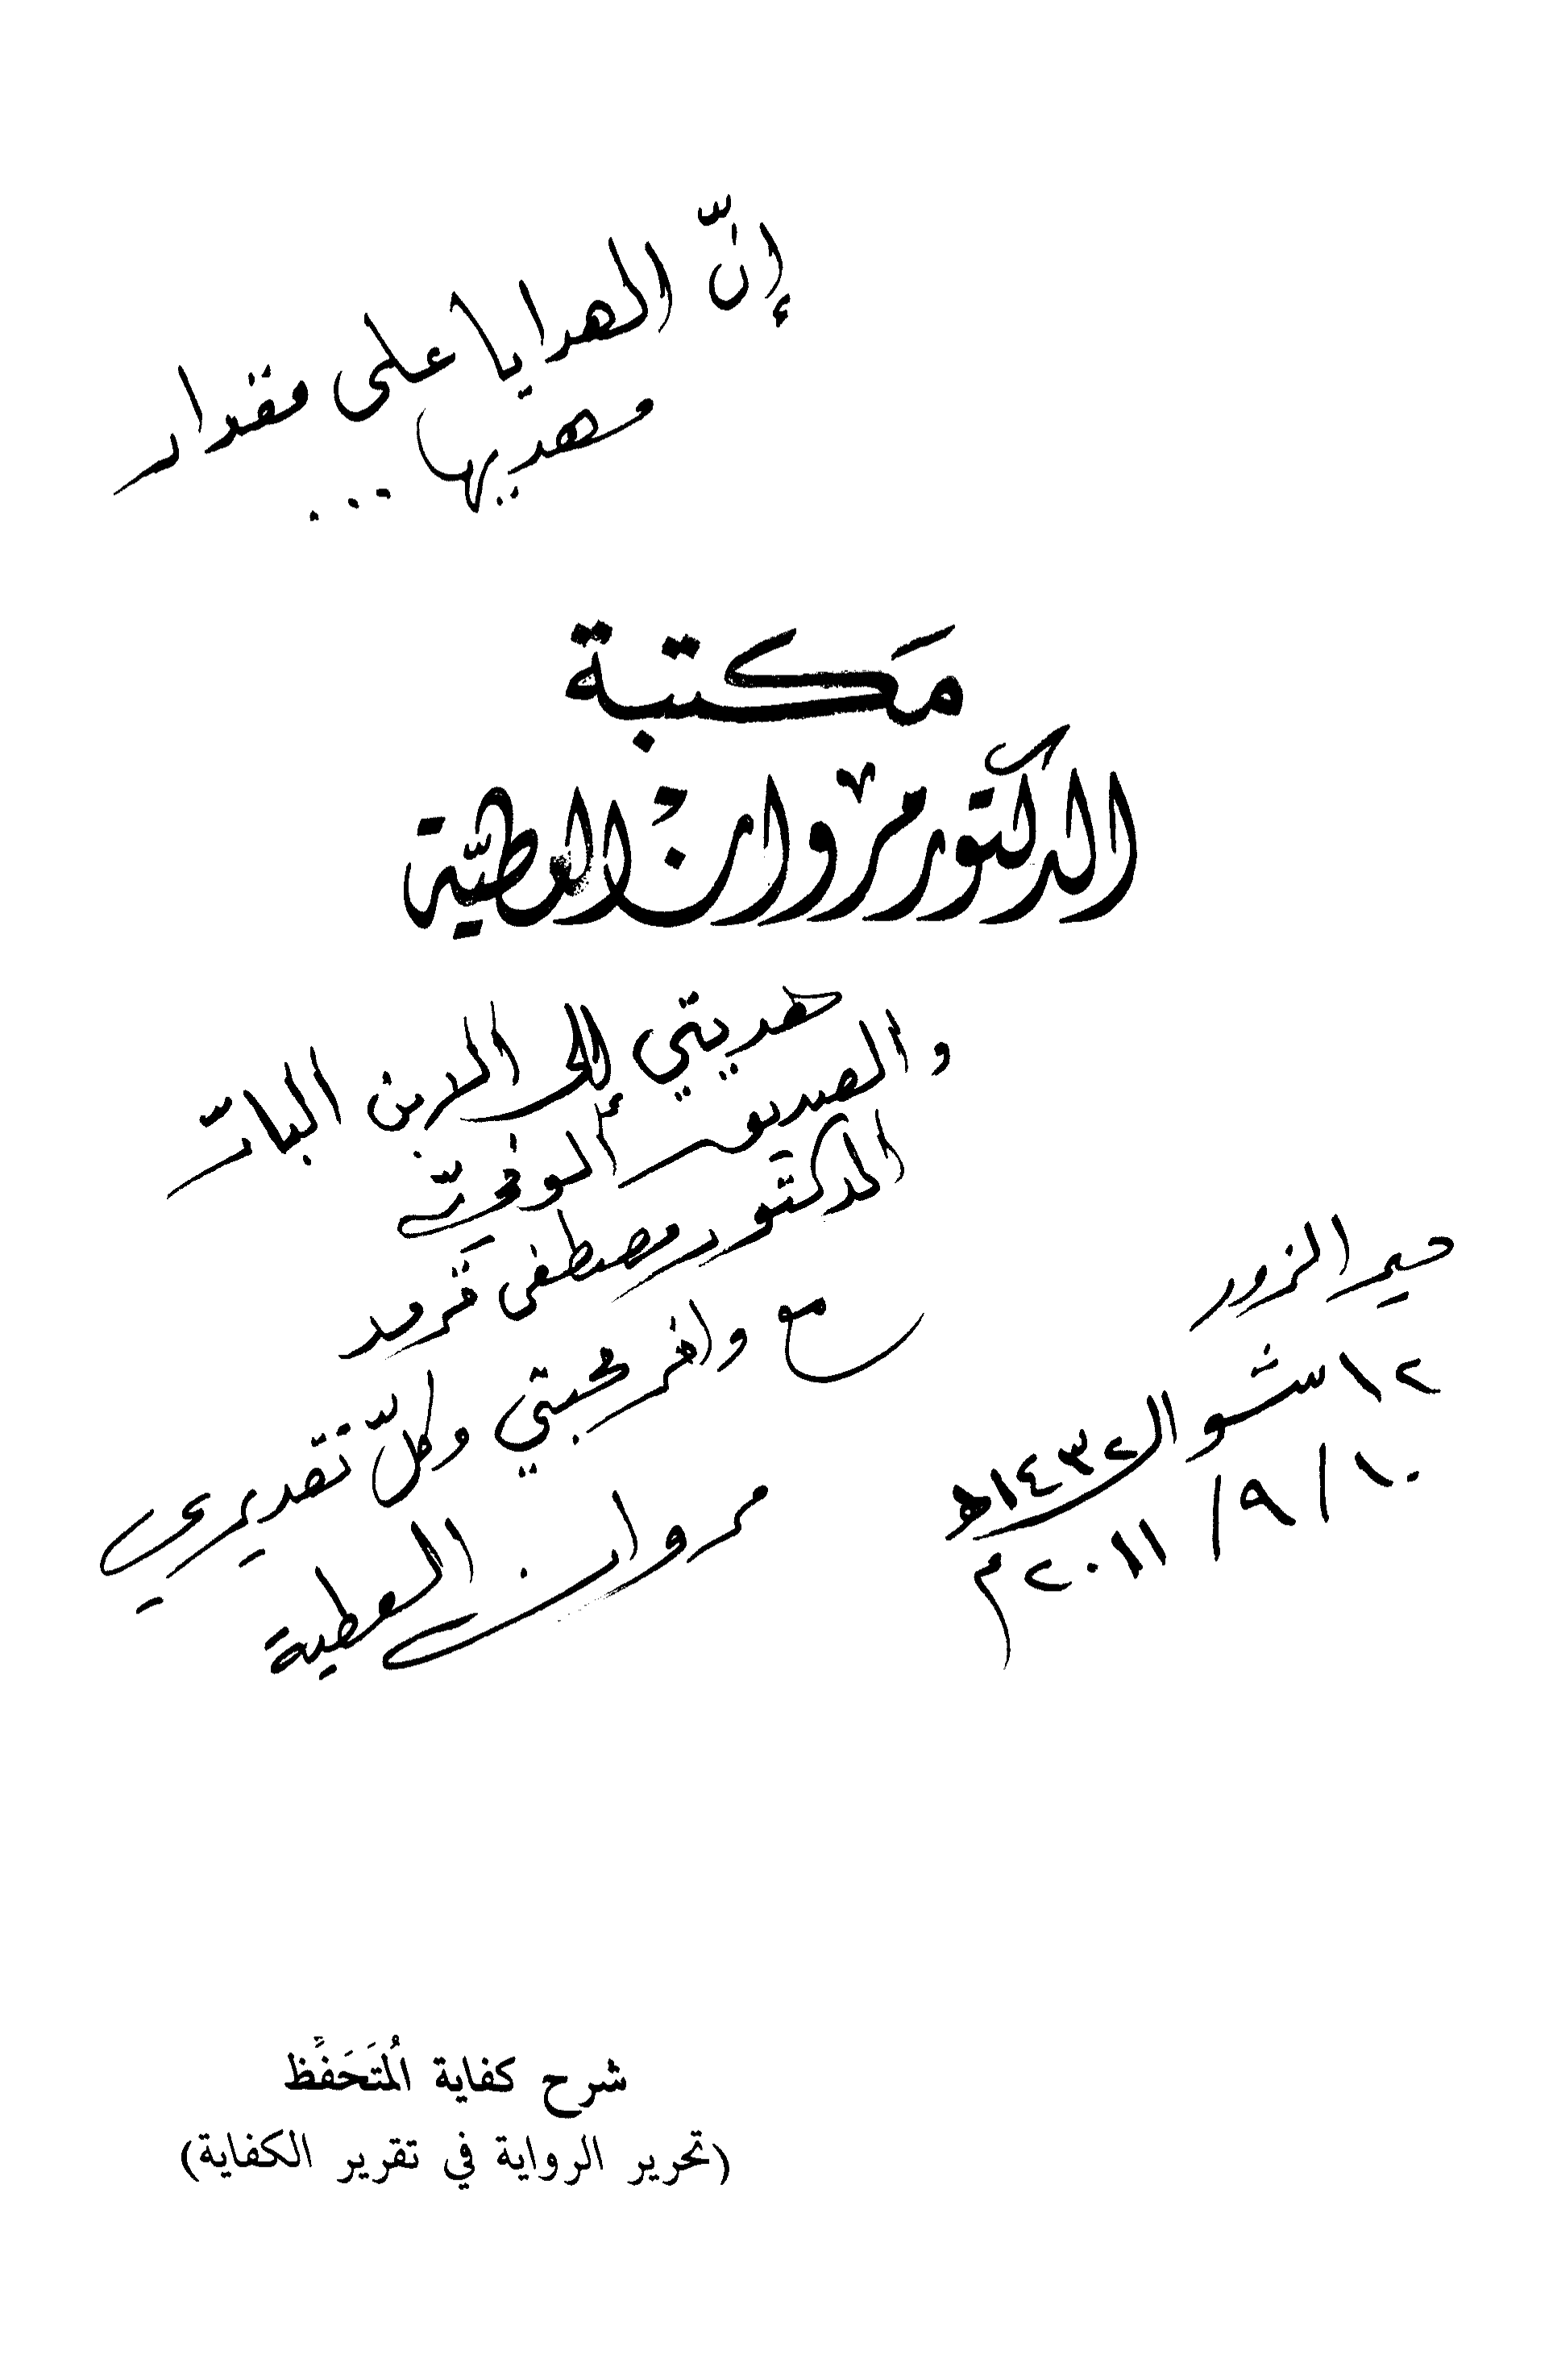 إنّ الهدايا على مقدار
مهديها ...
مَكتبة
الدكتور مروان العطيّة
هديتي إلى الابن البارّ
والصديق الوفيّ
الدكتور مصطفى قرمد
مع وافر محبتي وكلّ تقديري
مروان العطية
دير الزور
١٢ شوال ١٤٣٢هـ
١٠/٩/٢٠١١م
شرح كفاية المُتَحَفِّظ
(تحرير الرواية في تقرير الكفاية)